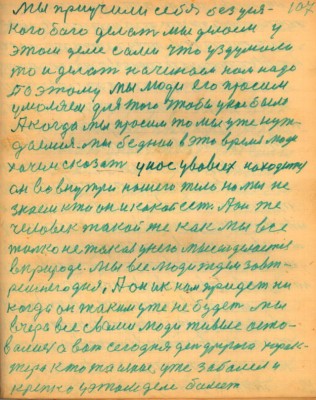 107
Мы приучили себя без уся-
кого бога делать мы делаем у
этом деле сами что уздумали
то и делать начинаем нам надо
По этому мы люди его просим
умоляем для того чтобы у нас было
А когда мы просим то мы уже нуж-
даимся. мы бедным в это время люди
хочим сказать у нас у во всех находится
он во внутри нашего тело но мы не
знаем кто он и какой есть А он же
человек такой же как мы все
только не такая у него мысль делается
в природе. Мы все люди ждем завт-
решнего дня, А он ик нам придет ни
когда он таким уже не будет мы
вчера все с вами люди живые оста-
валися а вот сегодня ден другого харак-
тера кто то из нас уже заболел и
крепко у этом деле болит